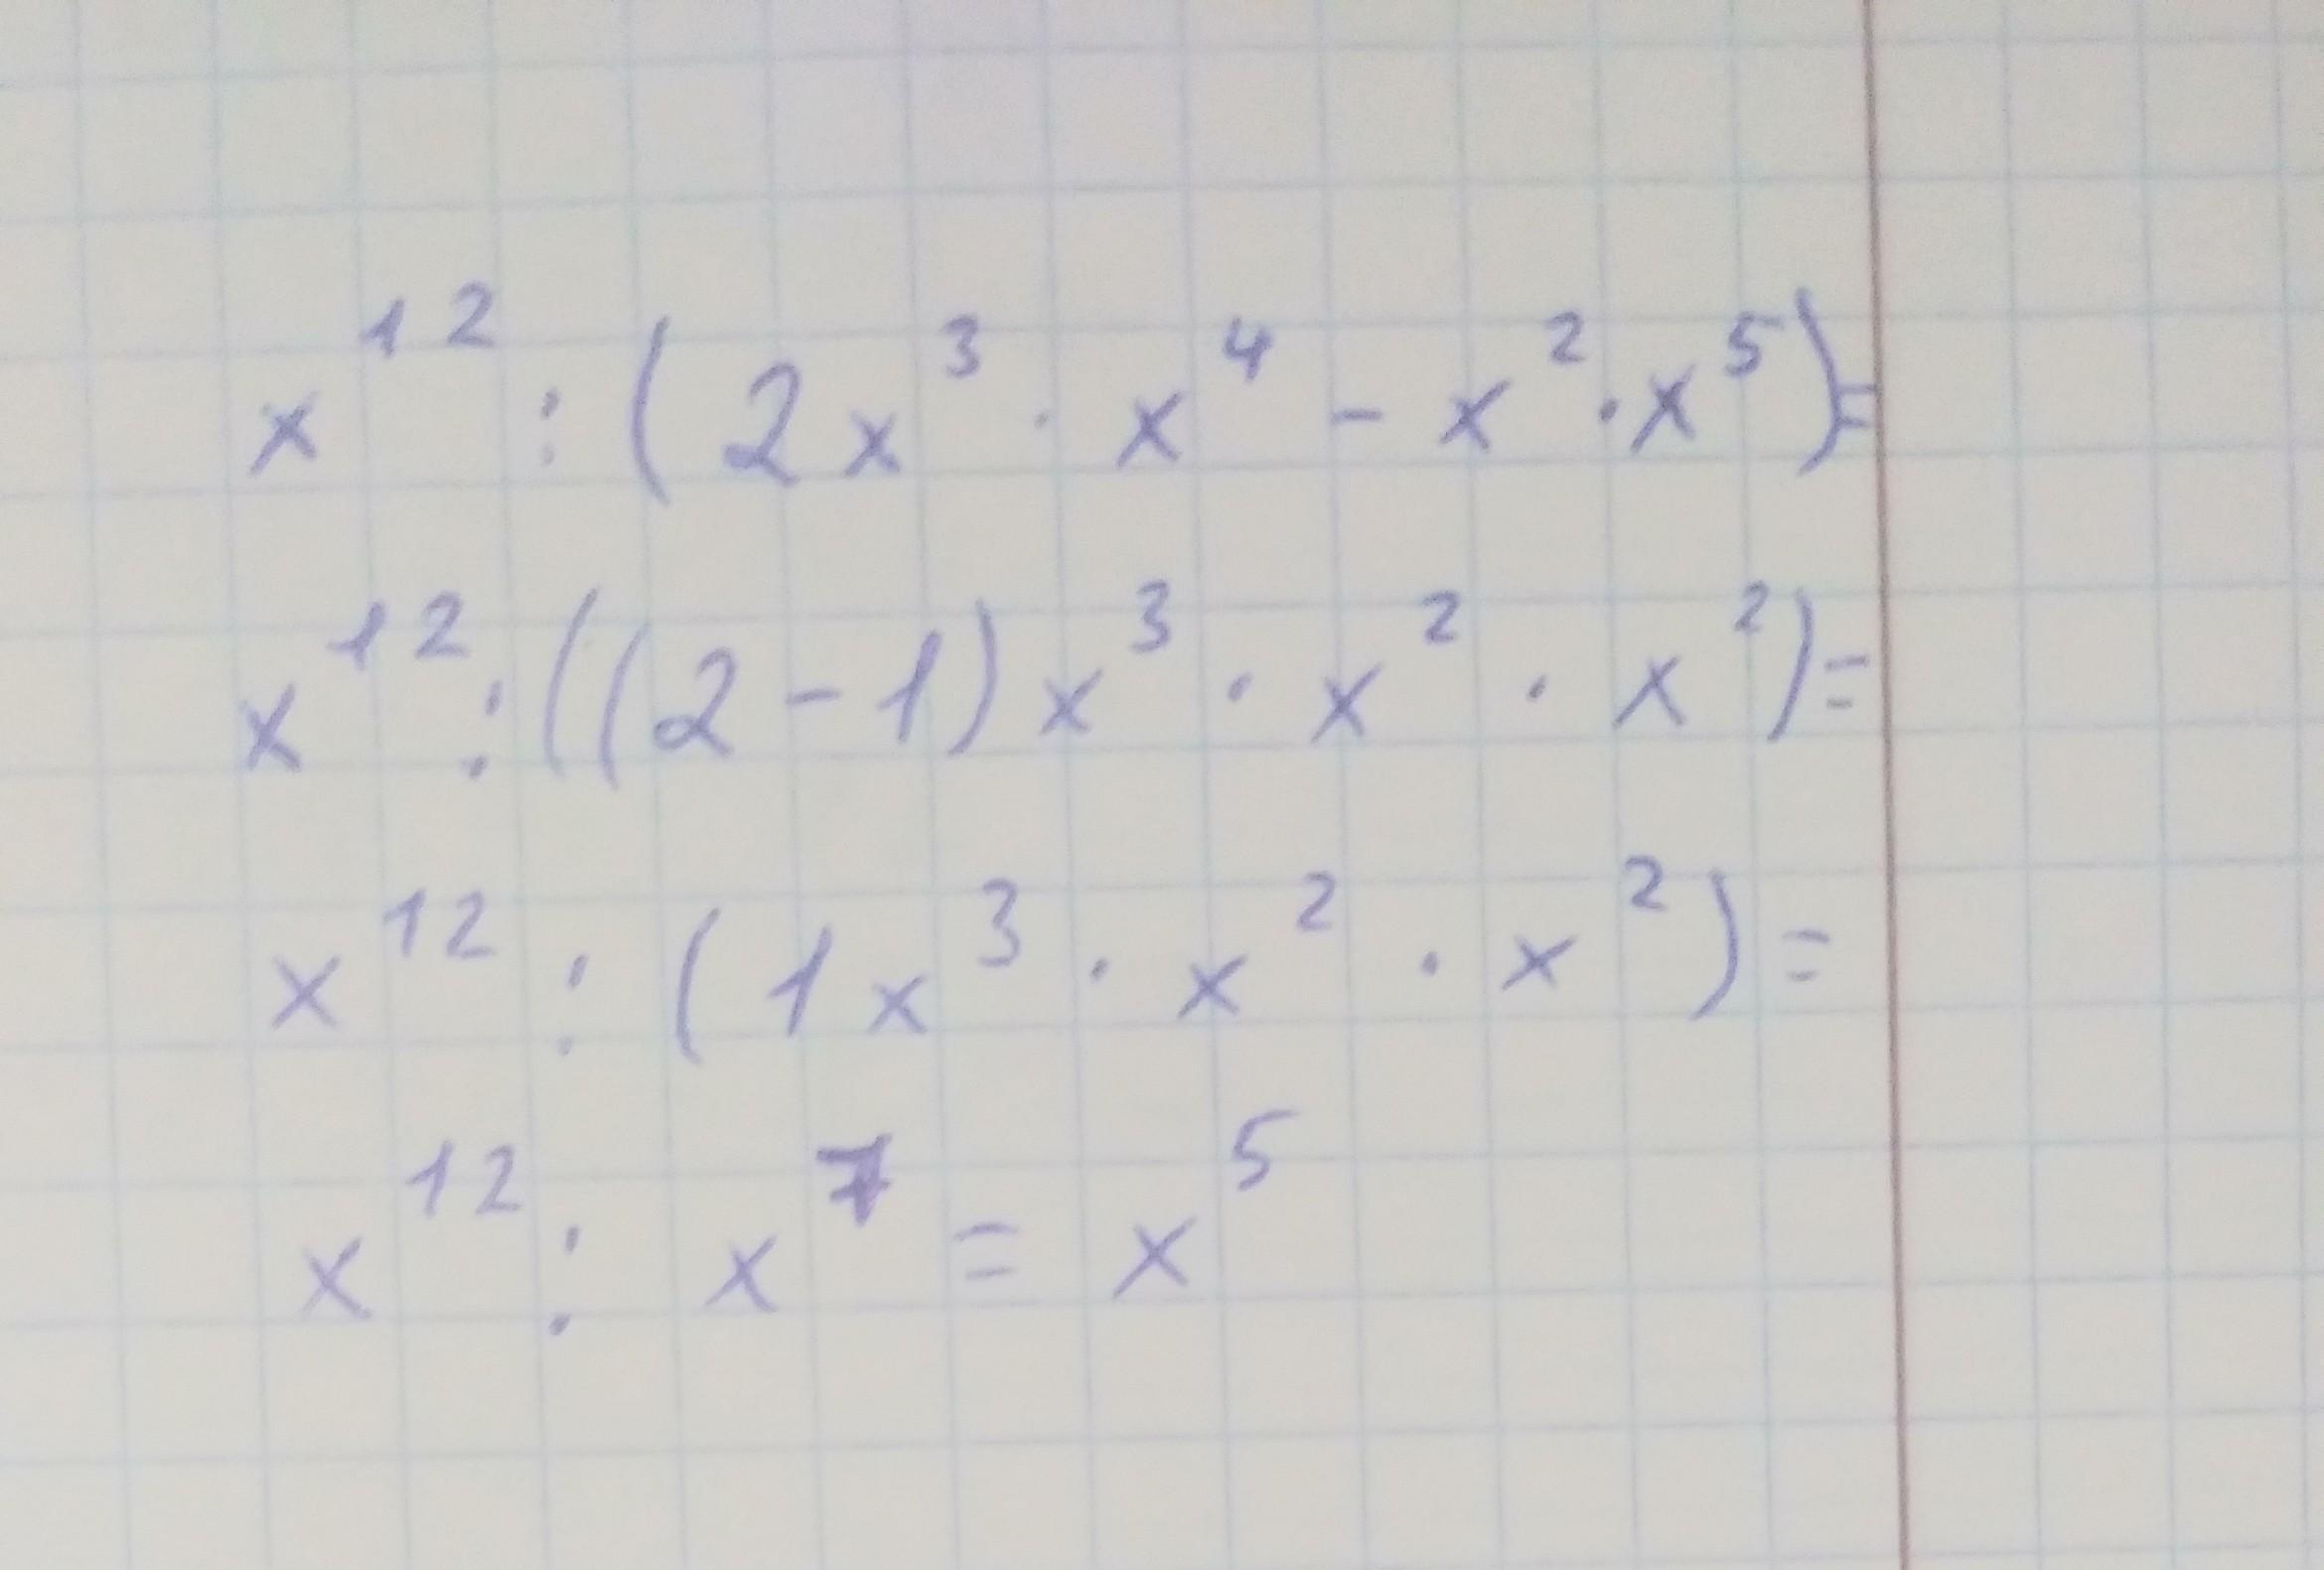 x¹² : (2x³ · x⁴ - x² · x⁵) =
x¹² : ((2 - 1)x³ · x² · x²) =
x¹² : (1x³ · x² · x²) =
x¹² : x⁷ = x⁵